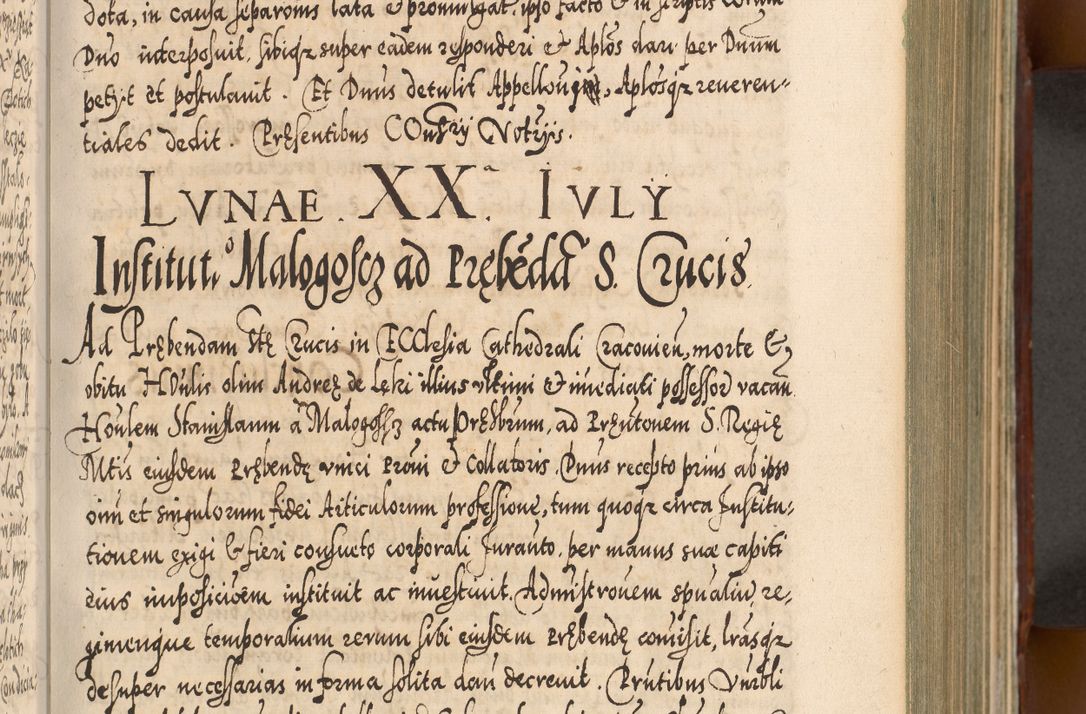 dota, in causa separoĩnis lata et promulgat. ipso facto et in scriptis Coram
Dno interposuit, sibiqz super eadem responderi et Aplos dari per Dnum
petyt et postulavit. Et Dnus detulit Appelloni, Aplosqz reveren-
tiales dedit. Pręsentibus COnsry Notrys.
LVNAE. XXª. IVLY
Institutº. Malogoscz ad Prębēdā S. Crucis.
Ad Prębendam Stę Crucis in ECClesia Cathedrali Cracovien, morte &
obitu HOnlis olim Andreę de Leki illius ultimi et imediati possessor vacan
Honlem Stanislaum à Malogoscz actu Pręsbrum, ad Pręntonem S. Regię
Mtis eiusdem Prębendę unici Proni et Collatoris. Dnus recepto prius ab ipso
oim et singulorum fidei Articulorum professione, tum quoqz circa Institu-
tionem exigi & fieri consueto corporali Juranto. per manus suæ capiti
eius imposicioem instituit ac investivit. Admistronem spualiu, re-
gimenque temporalium rerum sibi eiusdem Prębendę comisit, lrasqz
desuper necessarias in forma solita dari decrevit. Prntibus Vnrbli